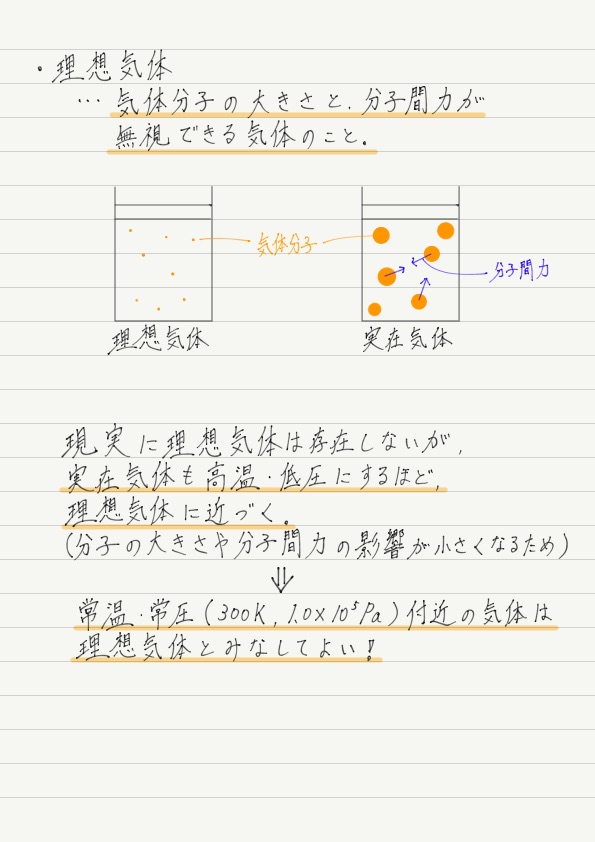 ・理想気体
… 気体分子の大きさと、分子間力が
無視できる気体のこと。
気体分子
分子間力
理想気体
実在気体
現実に理想気体は存在しないが、
実在気体も高温・低圧にするほど、
理想気体に近づく。
(分子の大きさや分子間力の影響が小さくなるため)
⇓
常温・常圧(300K, 1.0×10⁵Pa)付近の気体は
理想気体とみなしてよい!